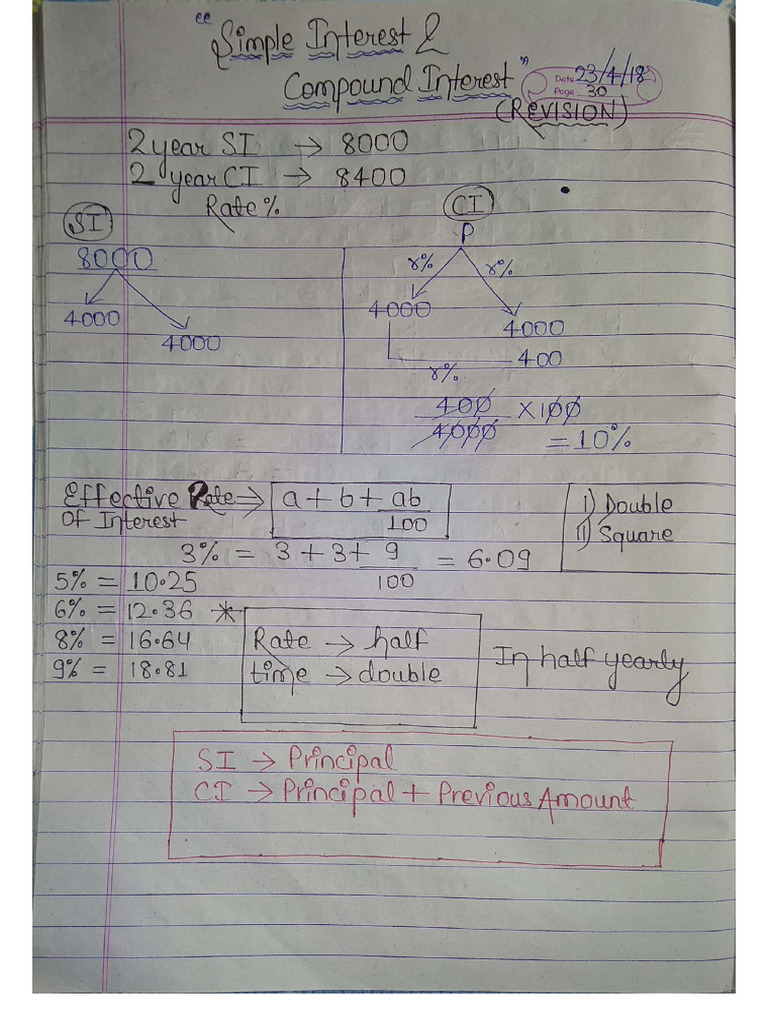 "Simple Interest &
Compound Interest"
Date 23/4/18
Page 30
(REVISION)
2 year SI → 8000
2 year CI → 8400
Rate %
SI
8000
4000
4000
CI
P
r% r%
4000
4000
400
r%
400/4000 × 100
= 10%
Effective Rate → a + b + ab/100
Of Interest
i) Double
ii) Square
3% = 3 + 3 + 9/100 = 6.09
5% = 10.25
6% = 12.36 *
8% = 16.64
9% = 18.81
Rate → half
time → double
In half yearly
SI → Principal
CI → Principal + Previous Amount